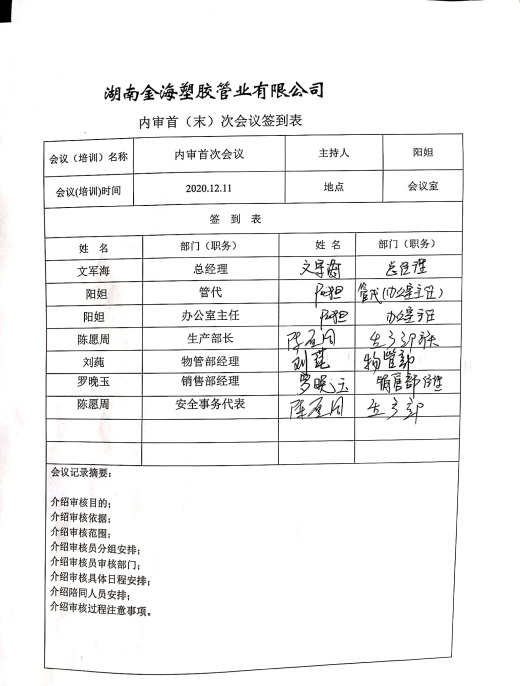 湖南金海塑胶管业有限公司
内审首（末）次会议签到表
会议（培训）名称 内审首次会议 主持人 阳妲
会议(培训)时间 2020.12.11 地点 会议室
签 到 表
姓 名 部门（职务） 姓 名 部门（职务）
文军海 总经理 文军海 总经理
阳妲 管代 阳妲 管代(办公室主任)
阳妲 办公室主任 阳妲 办公室主任
陈愿周 生产部长 陈愿周 生产部长
刘莼 物管部经理 刘莼 物管部
罗晚玉 销售部经理 罗晚玉 销售部经理
陈愿周 安全事务代表 陈愿周 生产部
会议记录摘要：
介绍审核目的；
介绍审核依据；
介绍审核范围；
介绍审核员分组安排；
介绍审核员审核部门；
介绍审核具体日程安排；
介绍陪同人员安排；
介绍审核过程注意事项。